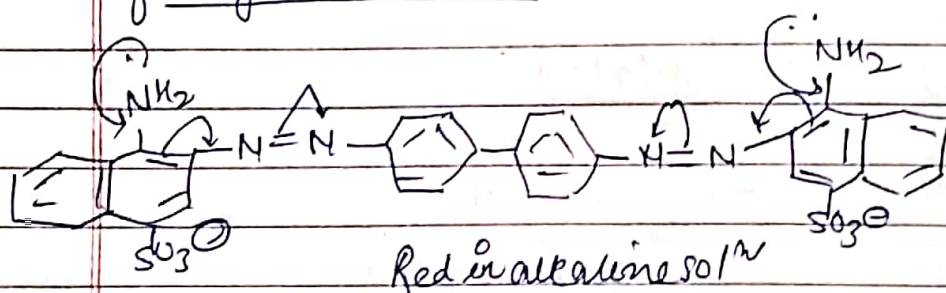 NH2 NH2
N=N N=N
SO3⊖ SO3⊖
Red in alkaline solⁿ